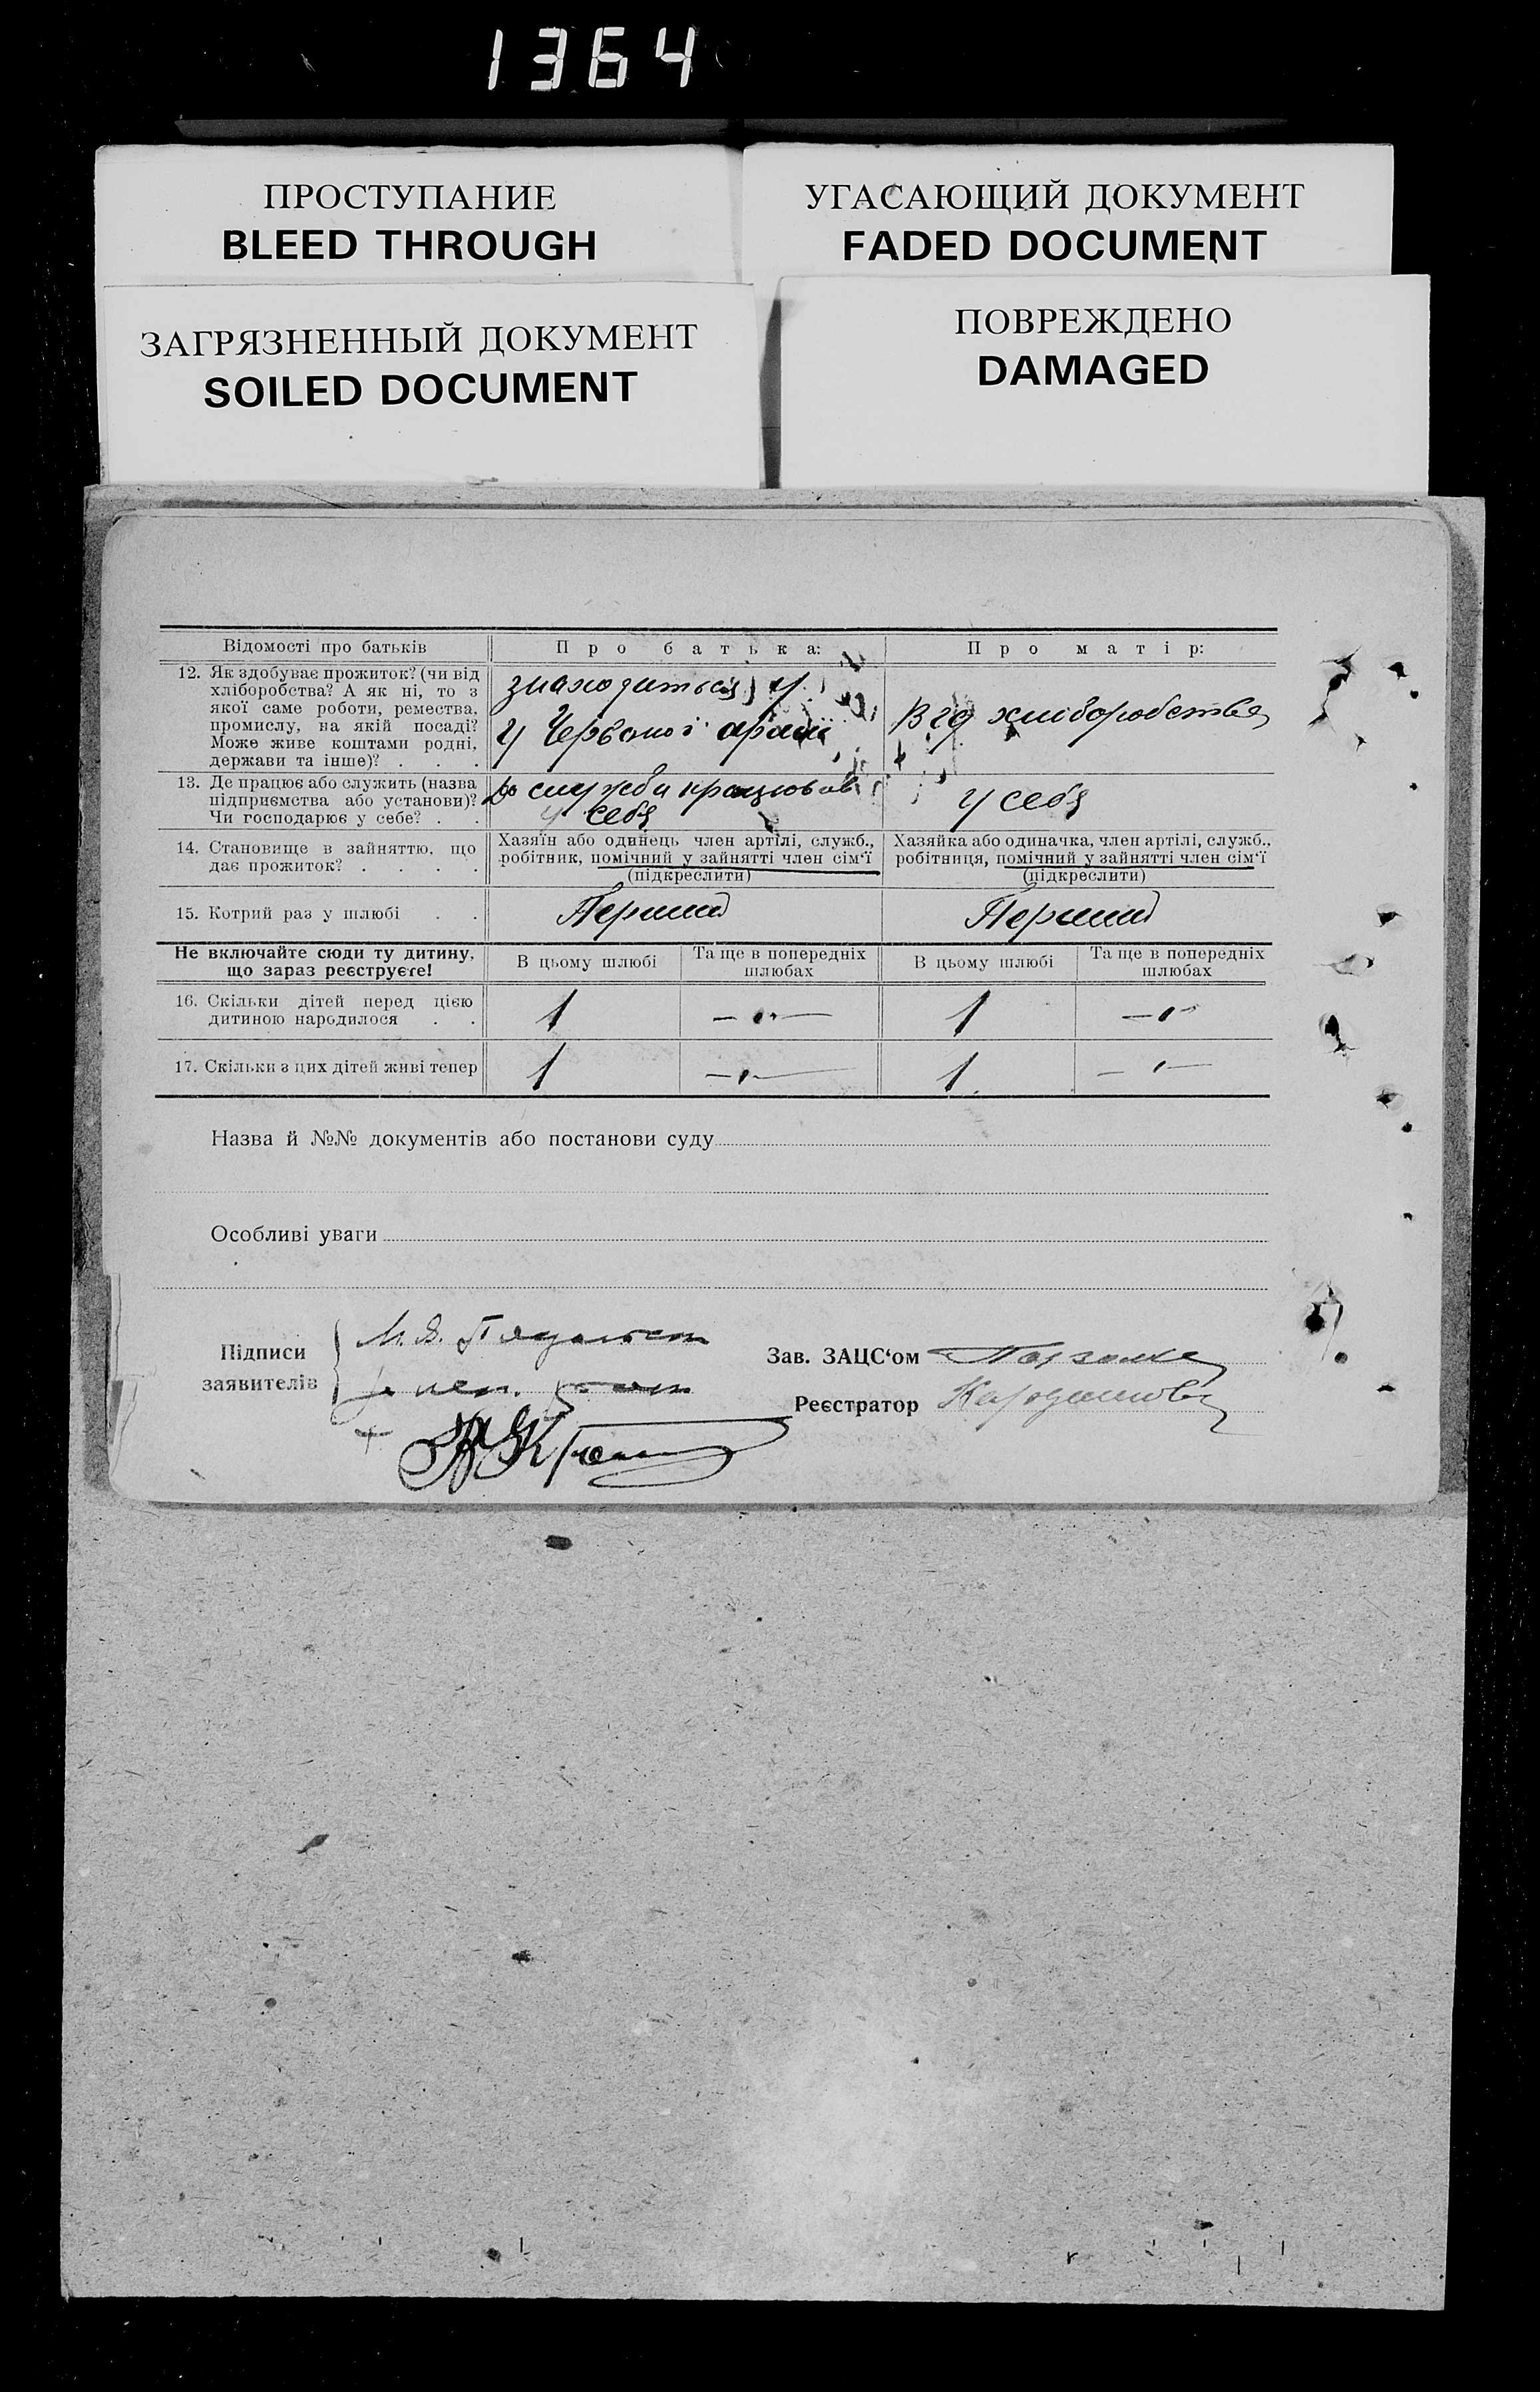 1364
ПРОСТУПАНИЕ
BLEED THROUGH
УГАСАЮЩИЙ ДОКУМЕНТ
FADED DOCUMENT
ЗАГРЯЗНЕННЫЙ ДОКУМЕНТ
SOILED DOCUMENT
ПОВРЕЖДЕНО
DAMAGED
Відомості про батьків
Про батька:
Про матір:
12. Як здобуває прожиток? (чи від
хліборобства? А як ні, то з
якої саме роботи, ремества,
промислу, на якій посаді?
Може живе коштами родні,
держави та інше)? . . .
знаходиться у
у Червоної армії
Від хліборобства
13. Де працює або служить (назва
підприємства або установи)?
Чи господарює у себе? . .
до служби працював
у себя
у себя
14. Становище в зайняттю, що
дає прожиток? . . . .
Хазяїн або одинець член артілі, служб.,
робітник, помічний у зайнятті член сім'ї
(підкреслити)
Хазяйка або одиначка, член артілі, служб.,
робітниця, помічний у зайнятті член сім'ї
(підкреслити)
15. Котрий раз у шлюбі . .
Перший
Перший
Не включайте сюди ту дитину,
що зараз реєструєте!
В цьому шлюбі
Та ще в попередніх
шлюбах
В цьому шлюбі
Та ще в попередніх
шлюбах
16. Скільки дітей перед цією
дитиною народилося . .
1
—„—
1
—„—
17. Скільки з цих дітей живі тепер
1
—„—
1
—„—
Назва й №№ документів або постанови суду
Особливі уваги
Підписи
заявителів
М. Я.
Зав. ЗАЦС'ом
Реєстратор